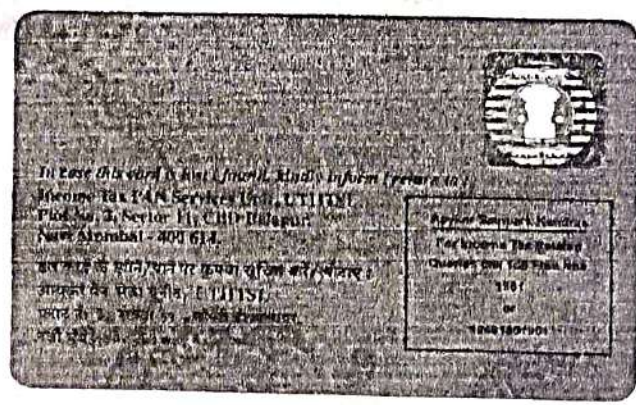 In case this card is lost / found, kindly inform / return to :
Income Tax PAN Services Unit, UTIITSL
Plot No. 3, Sector 11, CBD Belapur,
Navi Mumbai - 400 614.
इस कार्ड के खोने/पाने पर कृपया सूचित करें/लौटाएं :
आयकर पैन सेवा यूनीट, UTIITSL
प्लाट नं: 3, सेक्टर ११,
Aaykar Sampark Kendra
For Income Tax Related
Queries call Toll Free No.
1961
or